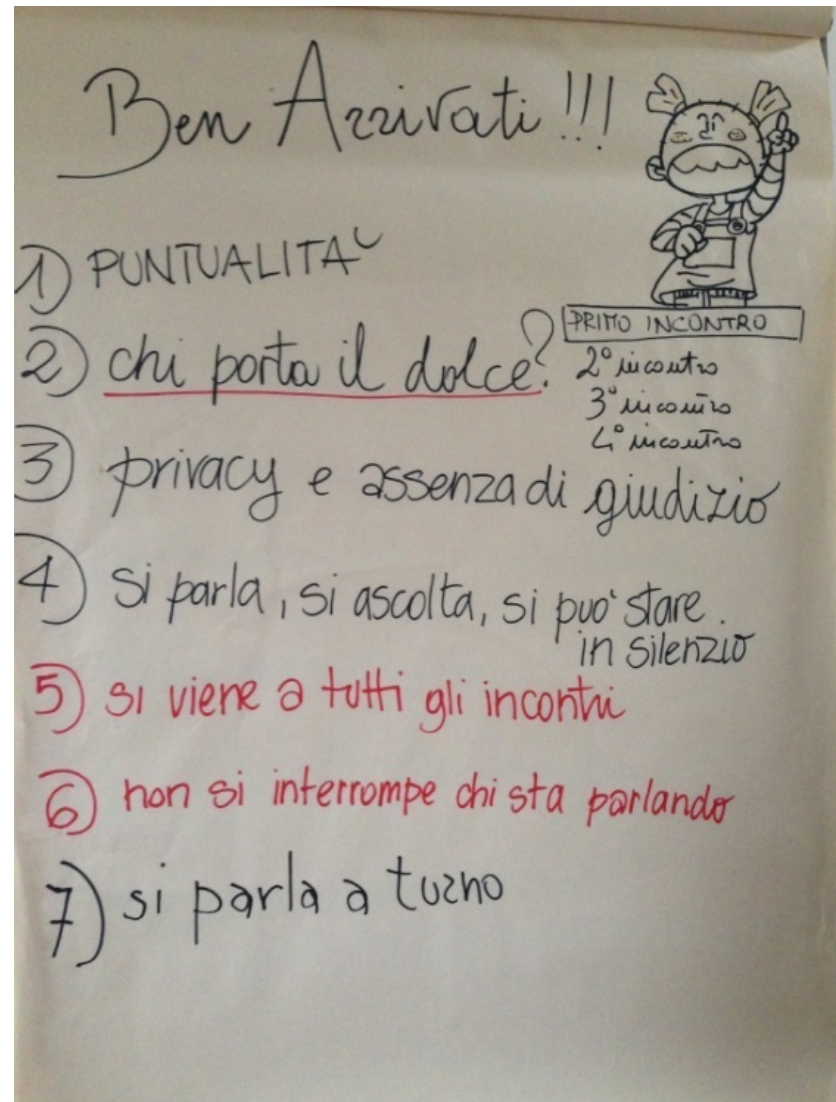 Ben Arrivati!!!
1) PUNTUALITA'
PRIMO INCONTRO
2) chi porta il dolce?
2° incontro
3° incontro
4° incontro
3) privacy e assenza di giudizio
4) si parla, si ascolta, si puo' stare.
in silenzio
5) si viene a tutti gli incontri
6) non si interrompe chi sta parlando
7) si parla a turno